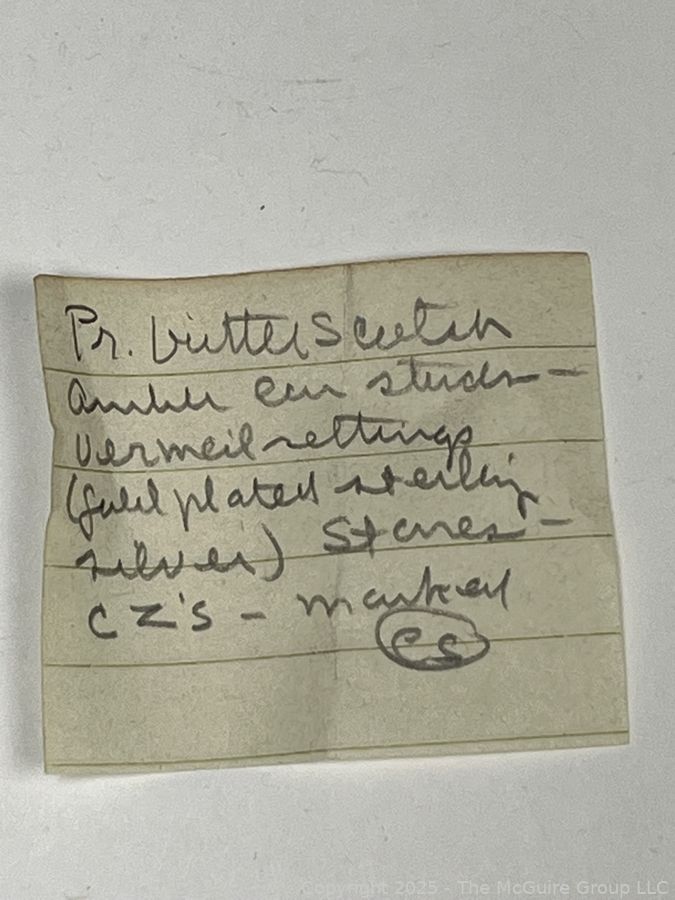 Pr. butterScotch
amber ear studs -
vermeil settings
(gold plated sterling
silver) Stones -
CZ's - marked
CS
Copyright 2025 - The McGuire Group LLC